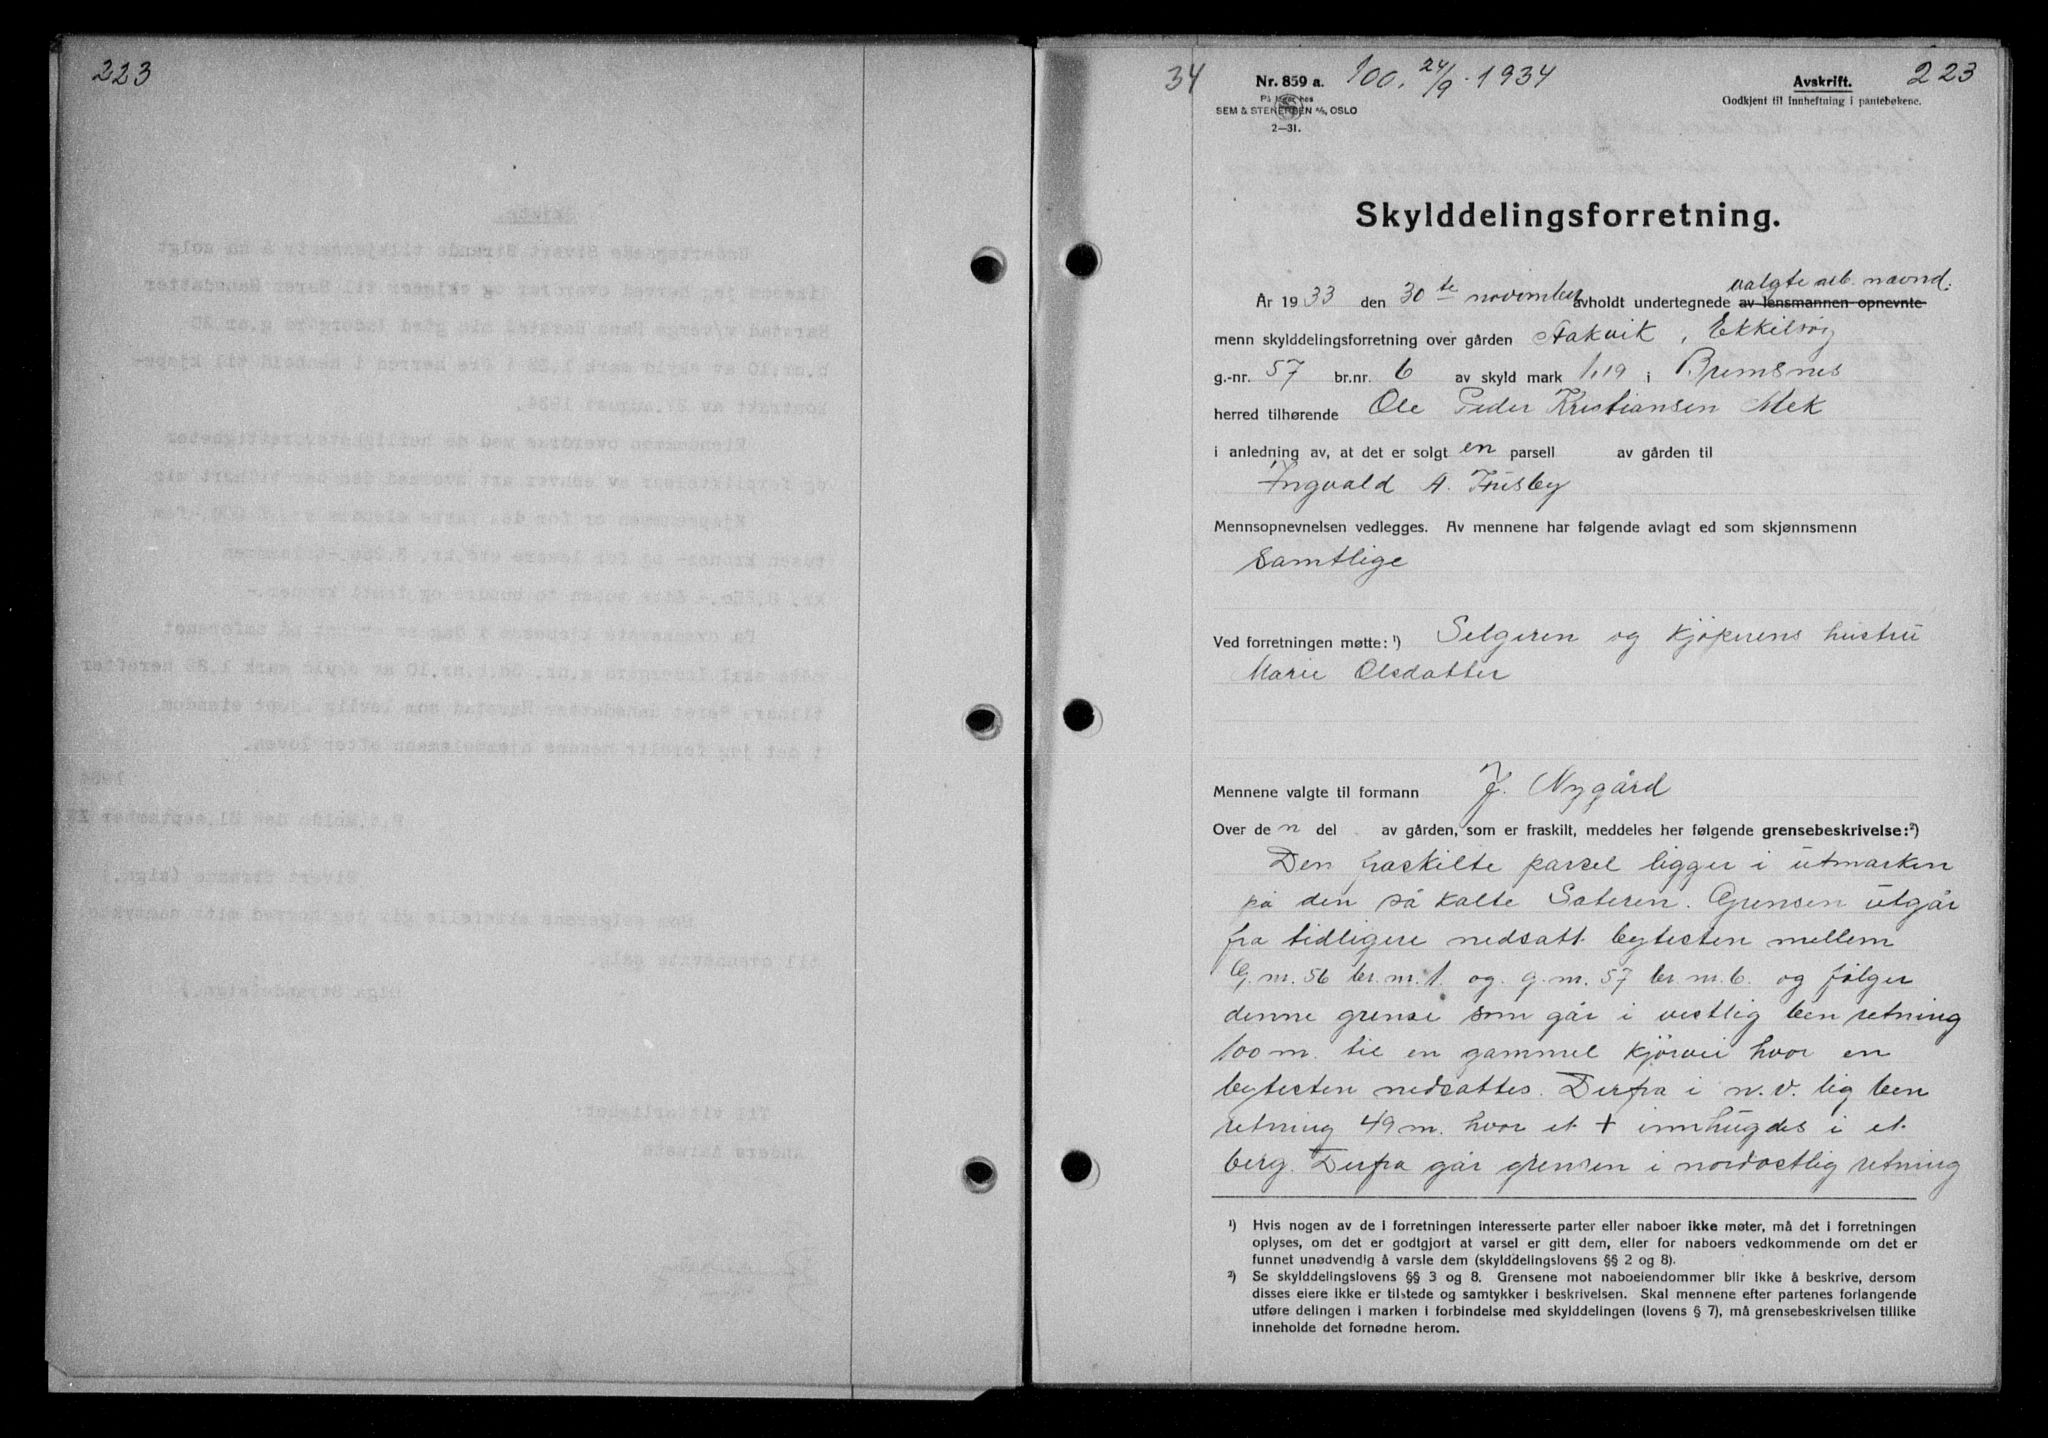 223
34
Nr. 859 a.
100. 24/9-1934
Avskrift.
223
På lager hos
SEM & STENERSEN A/S, OSLO
2—31.
Godkjent til innheftning i pantebøkene.
Skylddelingsforretning.
valgte
År 1933 den 30te november avholdt undertegnede av lensmannen opnevnte
menn skylddelingsforretning over gården Stakvik, Ekkilsøy
g.-nr. 57 br.nr. 6 av skyld mark 1,19 i Bremsnes
herred tilhørende Ole Peder Kristiansen Mek
i anledning av, at det er solgt en parsell av gården til
Ingvald A. Husby
Mennsopnevnelsen vedlegges. Av mennene har følgende avlagt ed som skjønnsmenn
samtlige
Ved forretningen møtte: ¹) Selgeren og kjøperens hustru
Marie Olsdatter
Mennene valgte til formann J. Nygård
Over de n del av gården, som er fraskilt, meddeles her følgende grensebeskrivelse: ²)
Den fraskilte parsel ligger i utmarken
på den så kalte Sateren. Grensen utgår
fra tidligere nedsatt bytesten mellem
G.nr. 56 br.nr. 1. og. g.nr. 57 br.nr. 6. og følger
denne grense som går i vestlig ben retning
100 m. til en gammel kjørvei hvor en
bytesten nedsattes. Derfra i n.v.lig ben
retning 49 m. hvor et + innhugdes i et
berg. Derfra går grensen i nordostlig retning
¹) Hvis nogen av de i forretningen interesserte parter eller naboer ikke møter, må det i forretningen
oplyses, om det er godtgjort at varsel er gitt dem, eller for naboers vedkommende om det er
funnet unødvendig å varsle dem (skylddelingslovens §§ 2 og 8).
²) Se skylddelingslovens §§ 3 og 8. Grensene mot naboeiendommer blir ikke å beskrive, dersom
disses eiere ikke er tilstede og samtykker i beskrivelsen. Skal mennene efter partenes forlangende
utføre delingen i marken i forbindelse med skylddelingen (lovens § 7), må grensebeskrivelsen tillike
inneholde det fornødne herom.